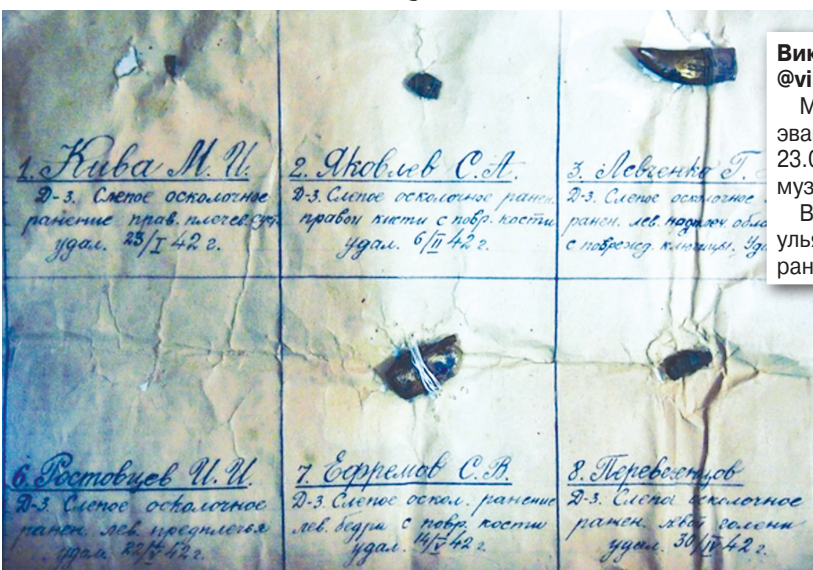 1. Кива М. И.
Д-3. Слепое осколочное
ранение прав. плечев.
удал. 23/I 42 г.
2. Яковлев С. А.
Д-3. Слепое осколочное ранен.
правой кисти с повр. кости
удал. 6/II 42 г.
3. Левченко Г.
Д-3. Слепое осколочное
ранен. лев. надключ. обла
с поврежд. ключицы. Уда
6. Ростовцев И. И.
Д-3. Слепое осколочное
ранен. лев. предплечья
удал. 42 г.
7. Ефремов С. В.
Д-3. Слепое оскол. ранение
лев. бедра с повр. кости
удал. 42 г.
8. Перевезенцов
Д-3. Слепое осколочное
ранен. левой голени
удал. 30/IV 42 г.
Вик
@vi
М
эва
23.0
муз
В
улья
ран